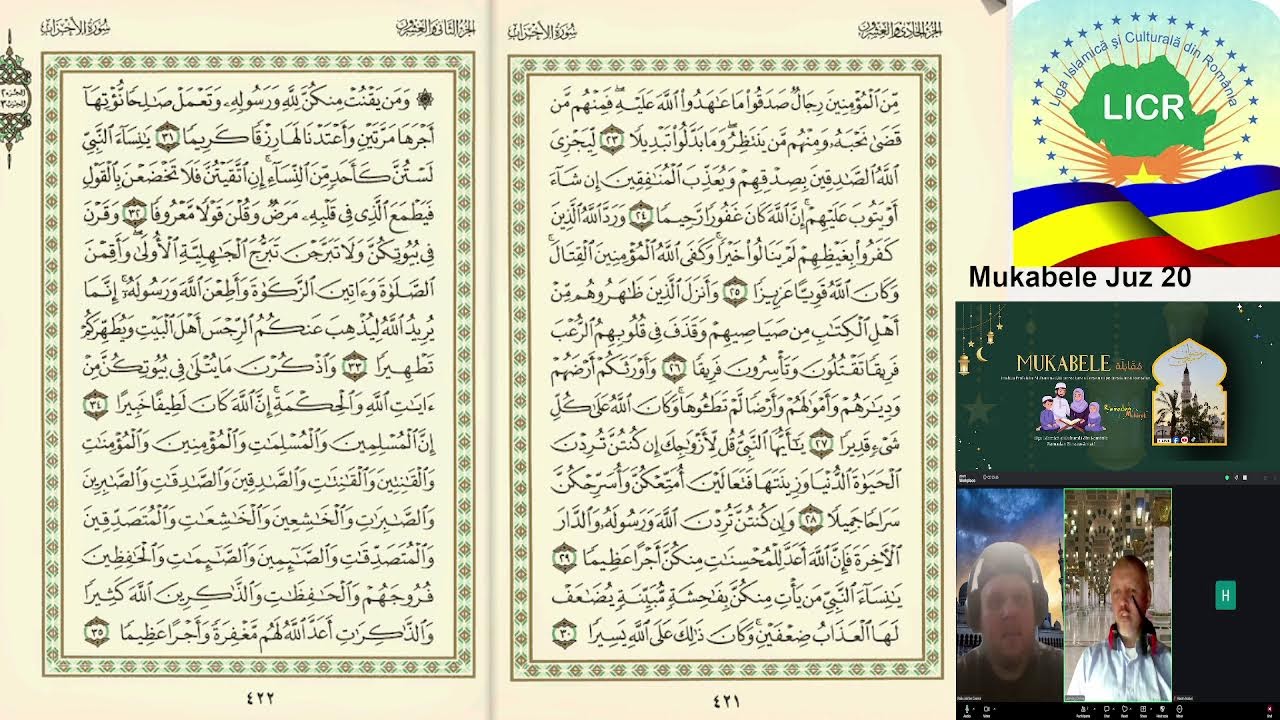 الجزء الحادي والعشرون
سورة الأحزاب
مِّنَ الْمُؤْمِنِينَ رِجَالٌ صَدَقُوا مَا عَاهَدُوا اللَّهَ عَلَيْهِ فَمِنْهُم مَّن
قَضَىٰ نَحْبَهُ وَمِنْهُم مَّن يَنتَظِرُ وَمَا بَدَّلُوا تَبْدِيلًا ٢٣ لِّيَجْزِيَ
اللَّهُ الصَّادِقِينَ بِصِدْقِهِمْ وَيُعَذِّبَ الْمُنَافِقِينَ إِن شَاءَ
أَوْ يَتُوبَ عَلَيْهِمْ إِنَّ اللَّهَ كَانَ غَفُورًا رَّحِيمًا ٢٤ وَرَدَّ اللَّهُ الَّذِينَ
كَفَرُوا بِغَيْظِهِمْ لَمْ يَنَالُوا خَيْرًا وَكَفَى اللَّهُ الْمُؤْمِنِينَ الْقِتَالَ
وَكَانَ اللَّهُ قَوِيًّا عَزِيزًا ٢٥ وَأَنزَلَ الَّذِينَ ظَاهَرُوهُم مِّنْ
أَهْلِ الْكِتَابِ مِن صَيَاصِيهِمْ وَقَذَفَ فِي قُلُوبِهِمُ الرُّعْبَ
فَرِيقًا تَقْتُلُونَ وَتَأْسِرُونَ فَرِيقًا ٢٦ وَأَوْرَثَكُمْ أَرْضَهُمْ
وَدِيَارَهُمْ وَأَمْوَالَهُمْ وَأَرْضًا لَّمْ تَطَئُوهَا وَكَانَ اللَّهُ عَلَىٰ كُلِّ
شَيْءٍ قَدِيرًا ٢٧ يَا أَيُّهَا النَّبِيُّ قُل لِّأَزْوَاجِكَ إِن كُنتُنَّ تُرِدْنَ
الْحَيَوٰةَ الدُّنْيَا وَزِينَتَهَا فَتَعَالَيْنَ أُمَتِّعْكُنَّ وَأُسَرِّحْكُنَّ
سَرَاحًا جَمِيلًا ٢٨ وَإِن كُنتُنَّ تُرِدْنَ اللَّهَ وَرَسُولَهُ وَالدَّارَ
الْآخِرَةَ فَإِنَّ اللَّهَ أَعَدَّ لِلْمُحْسِنَاتِ مِنكُنَّ أَجْرًا عَظِيمًا ٢٩
يَا نِسَاءَ النَّبِيِّ مَن يَأْتِ مِنكُنَّ بِفَاحِشَةٍ مُّبَيِّنَةٍ يُضَاعَفْ
لَهَا الْعَذَابُ ضِعْفَيْنِ وَكَانَ ذَٰلِكَ عَلَى اللَّهِ يَسِيرًا ٣٠
٤٢١
الجزء الثاني والعشرون
سورة الأحزاب
وَمَن يَقْنُتْ مِنكُنَّ لِلَّهِ وَرَسُولِهِ وَتَعْمَلْ صَالِحًا نُّؤْتِهَا
أَجْرَهَا مَرَّتَيْنِ وَأَعْتَدْنَا لَهَا رِزْقًا كَرِيمًا ٣١ يَا نِسَاءَ النَّبِيِّ
لَسْتُنَّ كَأَحَدٍ مِّنَ النِّسَاءِ إِنِ اتَّقَيْتُنَّ فَلَا تَخْضَعْنَ بِالْقَوْلِ
فَيَطْمَعَ الَّذِي فِي قَلْبِهِ مَرَضٌ وَقُلْنَ قَوْلًا مَّعْرُوفًا ٣٢ وَقَرْنَ
فِي بُيُوتِكُنَّ وَلَا تَبَرَّجْنَ تَبَرُّجَ الْجَاهِلِيَّةِ الْأُولَىٰ وَأَقِمْنَ
الصَّلَوٰةَ وَءَاتِينَ الزَّكَوٰةَ وَأَطِعْنَ اللَّهَ وَرَسُولَهُ إِنَّمَا
يُرِيدُ اللَّهُ لِيُذْهِبَ عَنكُمُ الرِّجْسَ أَهْلَ الْبَيْتِ وَيُطَهِّرَكُمْ
تَطْهِيرًا ٣٣ وَاذْكُرْنَ مَا يُتْلَىٰ فِي بُيُوتِكُنَّ مِنْ
ءَايَاتِ اللَّهِ وَالْحِكْمَةِ إِنَّ اللَّهَ كَانَ لَطِيفًا خَبِيرًا ٣٤
إِنَّ الْمُسْلِمِينَ وَالْمُسْلِمَاتِ وَالْمُؤْمِنِينَ وَالْمُؤْمِنَاتِ
وَالْقَانِتِينَ وَالْقَانِتَاتِ وَالصَّادِقِينَ وَالصَّادِقَاتِ وَالصَّابِرِينَ
وَالصَّابِرَاتِ وَالْخَاشِعِينَ وَالْخَاشِعَاتِ وَالْمُتَصَدِّقِينَ
وَالْمُتَصَدِّقَاتِ وَالصَّائِمِينَ وَالصَّائِمَاتِ وَالْحَافِظِينَ
فُرُوجَهُمْ وَالْحَافِظَاتِ وَالذَّاكِرِينَ اللَّهَ كَثِيرًا
وَالذَّاكِرَاتِ أَعَدَّ اللَّهُ لَهُم مَّغْفِرَةً وَأَجْرًا عَظِيمًا ٣٥
٤٢٢
Liga Islamică și Culturală din România
LICR
Mukabele Juz 20
MUKABELE مقابلة
Ramadan
Mubarak
H